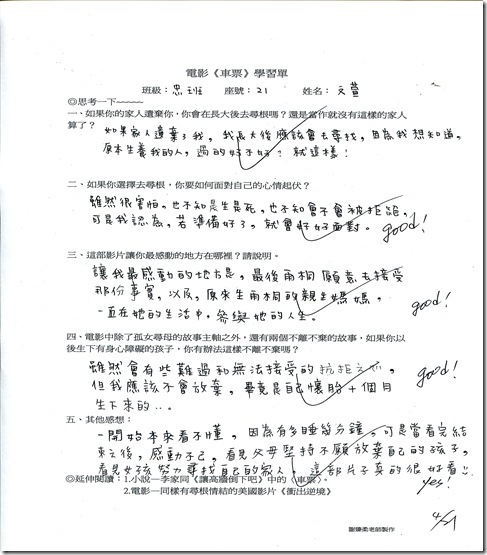 電影《車票》學習單
班級：忠班 座號：21 姓名：文萱
◎思考一下~~~~~
一、如果你的家人遺棄你，你會在長大後去尋根嗎？還是當作就沒有這樣的家人
算了？
如果家人遺棄了我，我長大後應該會去尋找，因為我想知道，
原本生養我的人，過的好不好？就這樣！
二、如果你選擇去尋根，你要如何面對自己的心情起伏？
雖然很害怕，也不知是生是死，也不知會不會被拒絕，
可是我認為，若準備好了，就會好好面對。 good！
三、這部影片讓你最感動的地方在哪裡？請說明。
讓我最感動的地方是，最後雨桐願意去接受
那份事實，以及，原來生雨桐的親生媽媽，
一直在她的生活中，參與她的人生。 good！
四、電影中除了孤女尋母的故事主軸之外，還有兩個不離不棄的故事，如果你以
後生下有身心障礙的孩子，你有辦法這樣不離不棄嗎？
雖然會有些難過和無法接受的抗拒之心， good！
但我應該不會放棄，畢竟是自己懷胎十個月
生下來的…。
五、其他感想：
一開始本來看不懂，因為有多睡幾分鐘，可是當看完結
束之後，感動不已，看見父母堅持不願放棄自己的孩子，
看見女孩努力尋找自己的家人，這部片子真的很好看
yes！
◎延伸閱讀：1.小說—李家同《讓高牆倒下吧》中的〈車票〉。
2.電影—同樣有尋根情結的美國影片《衝出逆境》
謝臻柔老師製作